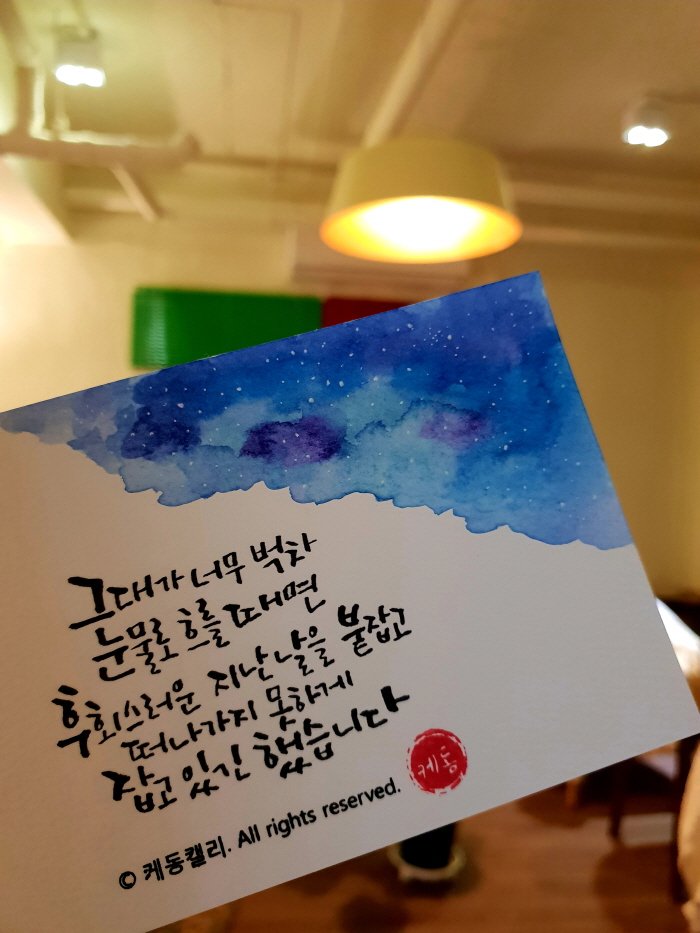 그대가 너무 벅차
눈물로 흐를 때면
후회스러운 지난 날을 붙잡고
떠나가지 못하게
잡고 있긴 했습니다
케동
© 케동캘리. All rights reserved.